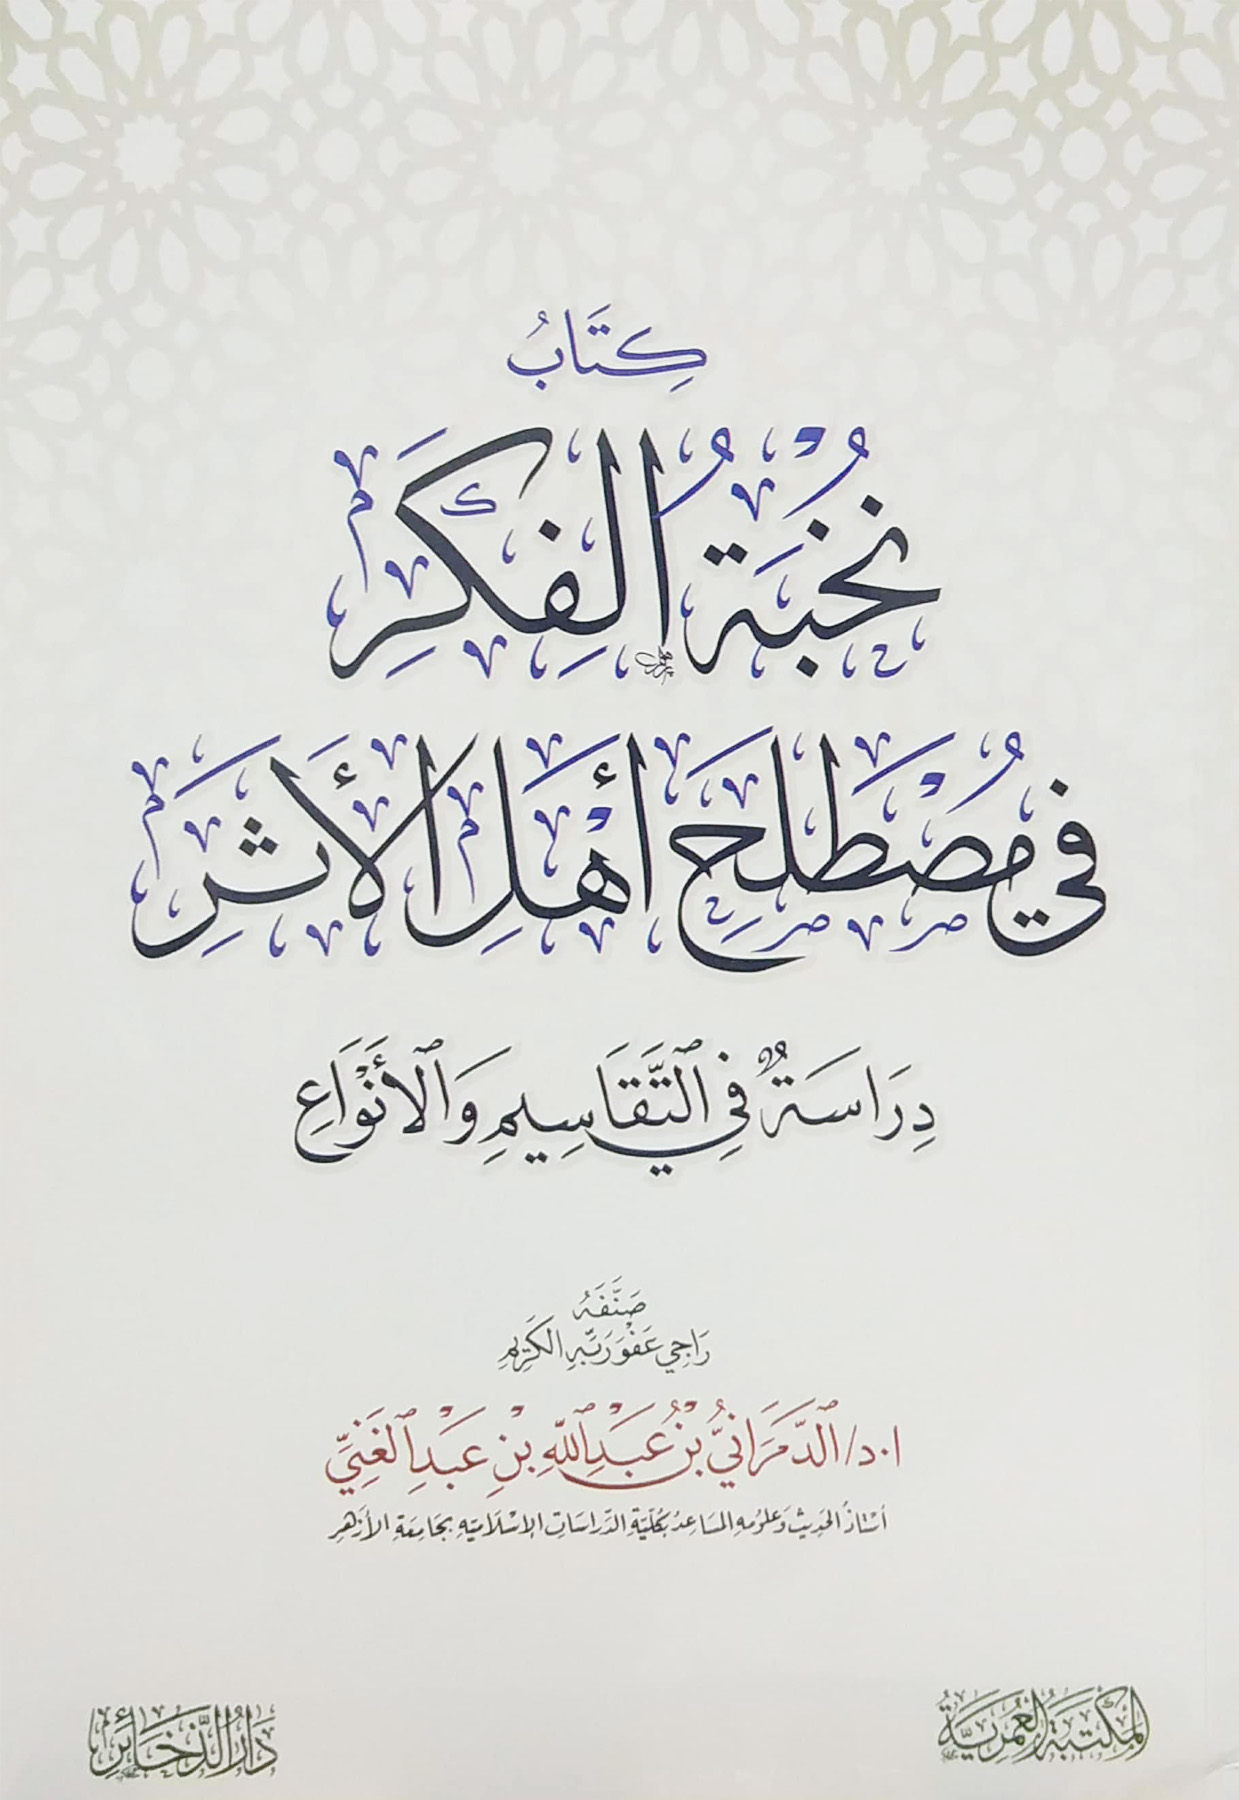 كِتَابُ
نُخْبَةُ الفِكَرِ
فِي مُصْطَلَحِ أَهْلِ الأَثَرِ
دِرَاسَةٌ فِي التَّقَاسِيمِ وَالأَنْوَاعِ
صَنَّفَهُ
رَاجِي عَفْوَ رَبِّهِ الكَرِيمِ
ا.د/ الدَّمَرَانِيُّ بْنُ عَبْدِ اللَّهِ بْنِ عَبْدِ الغَنِيِّ
أسْتَاذُ الحَدِيثِ وَعُلُومِهِ المسَاعِدُ بكُلِّيَّةِ الدِّرَاسَاتِ الإِسْلَامِيَّةِ بِجَامِعَةِ الأَزْهَرِ
المَكْتَبَةُ العُمَرِيَّةُ
دَارُ الذَّخَائِرِ